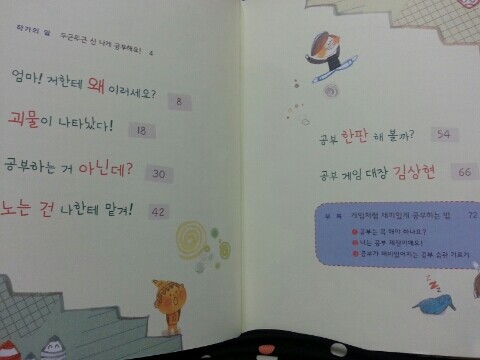 작가의 말 두근두근 신 나게 공부해요! 4
엄마! 저한테 왜 이러세요? 8
괴물이 나타났다! 18
공부하는 거 아닌데? 30
노는 건 나한테 맡겨! 42
공부 한판 해 볼까? 54
공부 게임 대장 김상현 66
부록 게임처럼 재미있게 공부하는 법 72
1 공부는 꼭 해야 하나요?
2 나는 공부 체질이에요!
3 공부가 재미있어지는 공부 습관 기르기